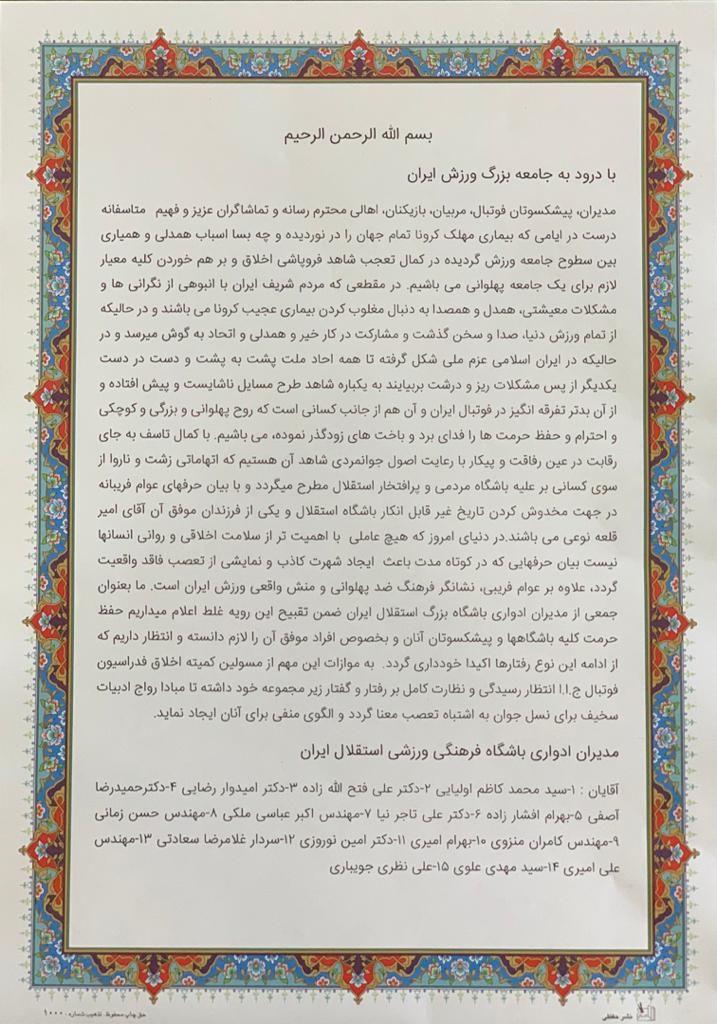 بسم الله الرحمن الرحیم
با درود به جامعه بزرگ ورزش ایران
مدیران، پیشکسوتان فوتبال، مربیان، بازیکنان، اهالی محترم رسانه و تماشاگران عزیز و فهیم متاسفانه
درست در ایامی که بیماری مهلک کرونا تمام جهان را در نوردیده و چه بسا اسباب همدلی و همیاری
بین سطوح جامعه ورزش گردیده در کمال تعجب شاهد فروپاشی اخلاق و بر هم خوردن کلیه معیار
لازم برای یک جامعه پهلوانی می باشیم. در مقطعی که مردم شریف ایران با انبوهی از نگرانی ها و
مشکلات معیشتی، همدل و همصدا به دنبال مغلوب کردن بیماری عجیب کرونا می باشند و در حالیکه
از تمام ورزش دنیا، صدا و سخن گذشت و مشارکت در کار خیر و همدلی و اتحاد به گوش میرسد و در
حالیکه در ایران اسلامی عزم ملی شکل گرفته تا همه احاد ملت پشت به پشت و دست در دست
یکدیگر از پس مشکلات ریز و درشت بربیایند به یکباره شاهد طرح مسایل ناشایست و پیش افتاده و
از آن بدتر تفرقه انگیز در فوتبال ایران و آن هم از جانب کسانی است که روح پهلوانی و بزرگی و کوچکی
و احترام و حفظ حرمت ها را فدای برد و باخت های زودگذر نموده، می باشیم. با کمال تاسف به جای
رقابت در عین رفاقت و پیکار با رعایت اصول جوانمردی شاهد آن هستیم که اتهاماتی زشت و ناروا از
سوی کسانی بر علیه باشگاه مردمی و پرافتخار استقلال مطرح میگردد و با بیان حرفهای عوام فریبانه
در جهت مخدوش کردن تاریخ غیر قابل انکار باشگاه استقلال و یکی از فرزندان موفق آن آقای امیر
قلعه نوعی می باشند.در دنیای امروز که هیچ عاملی با اهمیت تر از سلامت اخلاقی و روانی انسانها
نیست بیان حرفهایی که در کوتاه مدت باعث ایجاد شهرت کاذب و نمایشی از تعصب فاقد واقعیت
گردد، علاوه بر عوام فریبی، نشانگر فرهنگ ضد پهلوانی و منش واقعی ورزش ایران است. ما بعنوان
جمعی از مدیران ادواری باشگاه بزرگ استقلال ایران ضمن تقبیح این رویه غلط اعلام میداریم حفظ
حرمت کلیه باشگاهها و پیشکسوتان آنان و بخصوص افراد موفق آن را لازم دانسته و انتظار داریم که
از ادامه این نوع رفتارها اکیدا خودداری گردد. به موازات این مهم از مسولین کمیته اخلاق فدراسیون
فوتبال ج.ا.ا انتظار رسیدگی و نظارت کامل بر رفتار و گفتار زیر مجموعه خود داشته تا مبادا رواج ادبیات
سخیف برای نسل جوان به اشتباه تعصب معنا گردد و الگوی منفی برای آنان ایجاد نماید.
مدیران ادواری باشگاه فرهنگی ورزشی استقلال ایران
آقایان : ۱-سید محمد کاظم اولیایی ۲-دکتر علی فتح الله زاده ۳-دکتر امیدوار رضایی ۴-دکترحمیدرضا
آصفی ۵-بهرام افشار زاده ۶-دکتر علی تاجر نیا ۷-مهندس اکبر عباسی ملکی ۸-مهندس حسن زمانی
۹-مهندس کامران منزوی ۱۰-بهرام امیری ۱۱-دکتر امین نوروزی ۱۲-سردار غلامرضا سعادتی ۱۳-مهندس
علی امیری ۱۴-سید مهدی علوی ۱۵-علی نظری جویباری
نشر حفظی
حق چاپ محفوظ. تذهیب شماره ۱۰۰۰